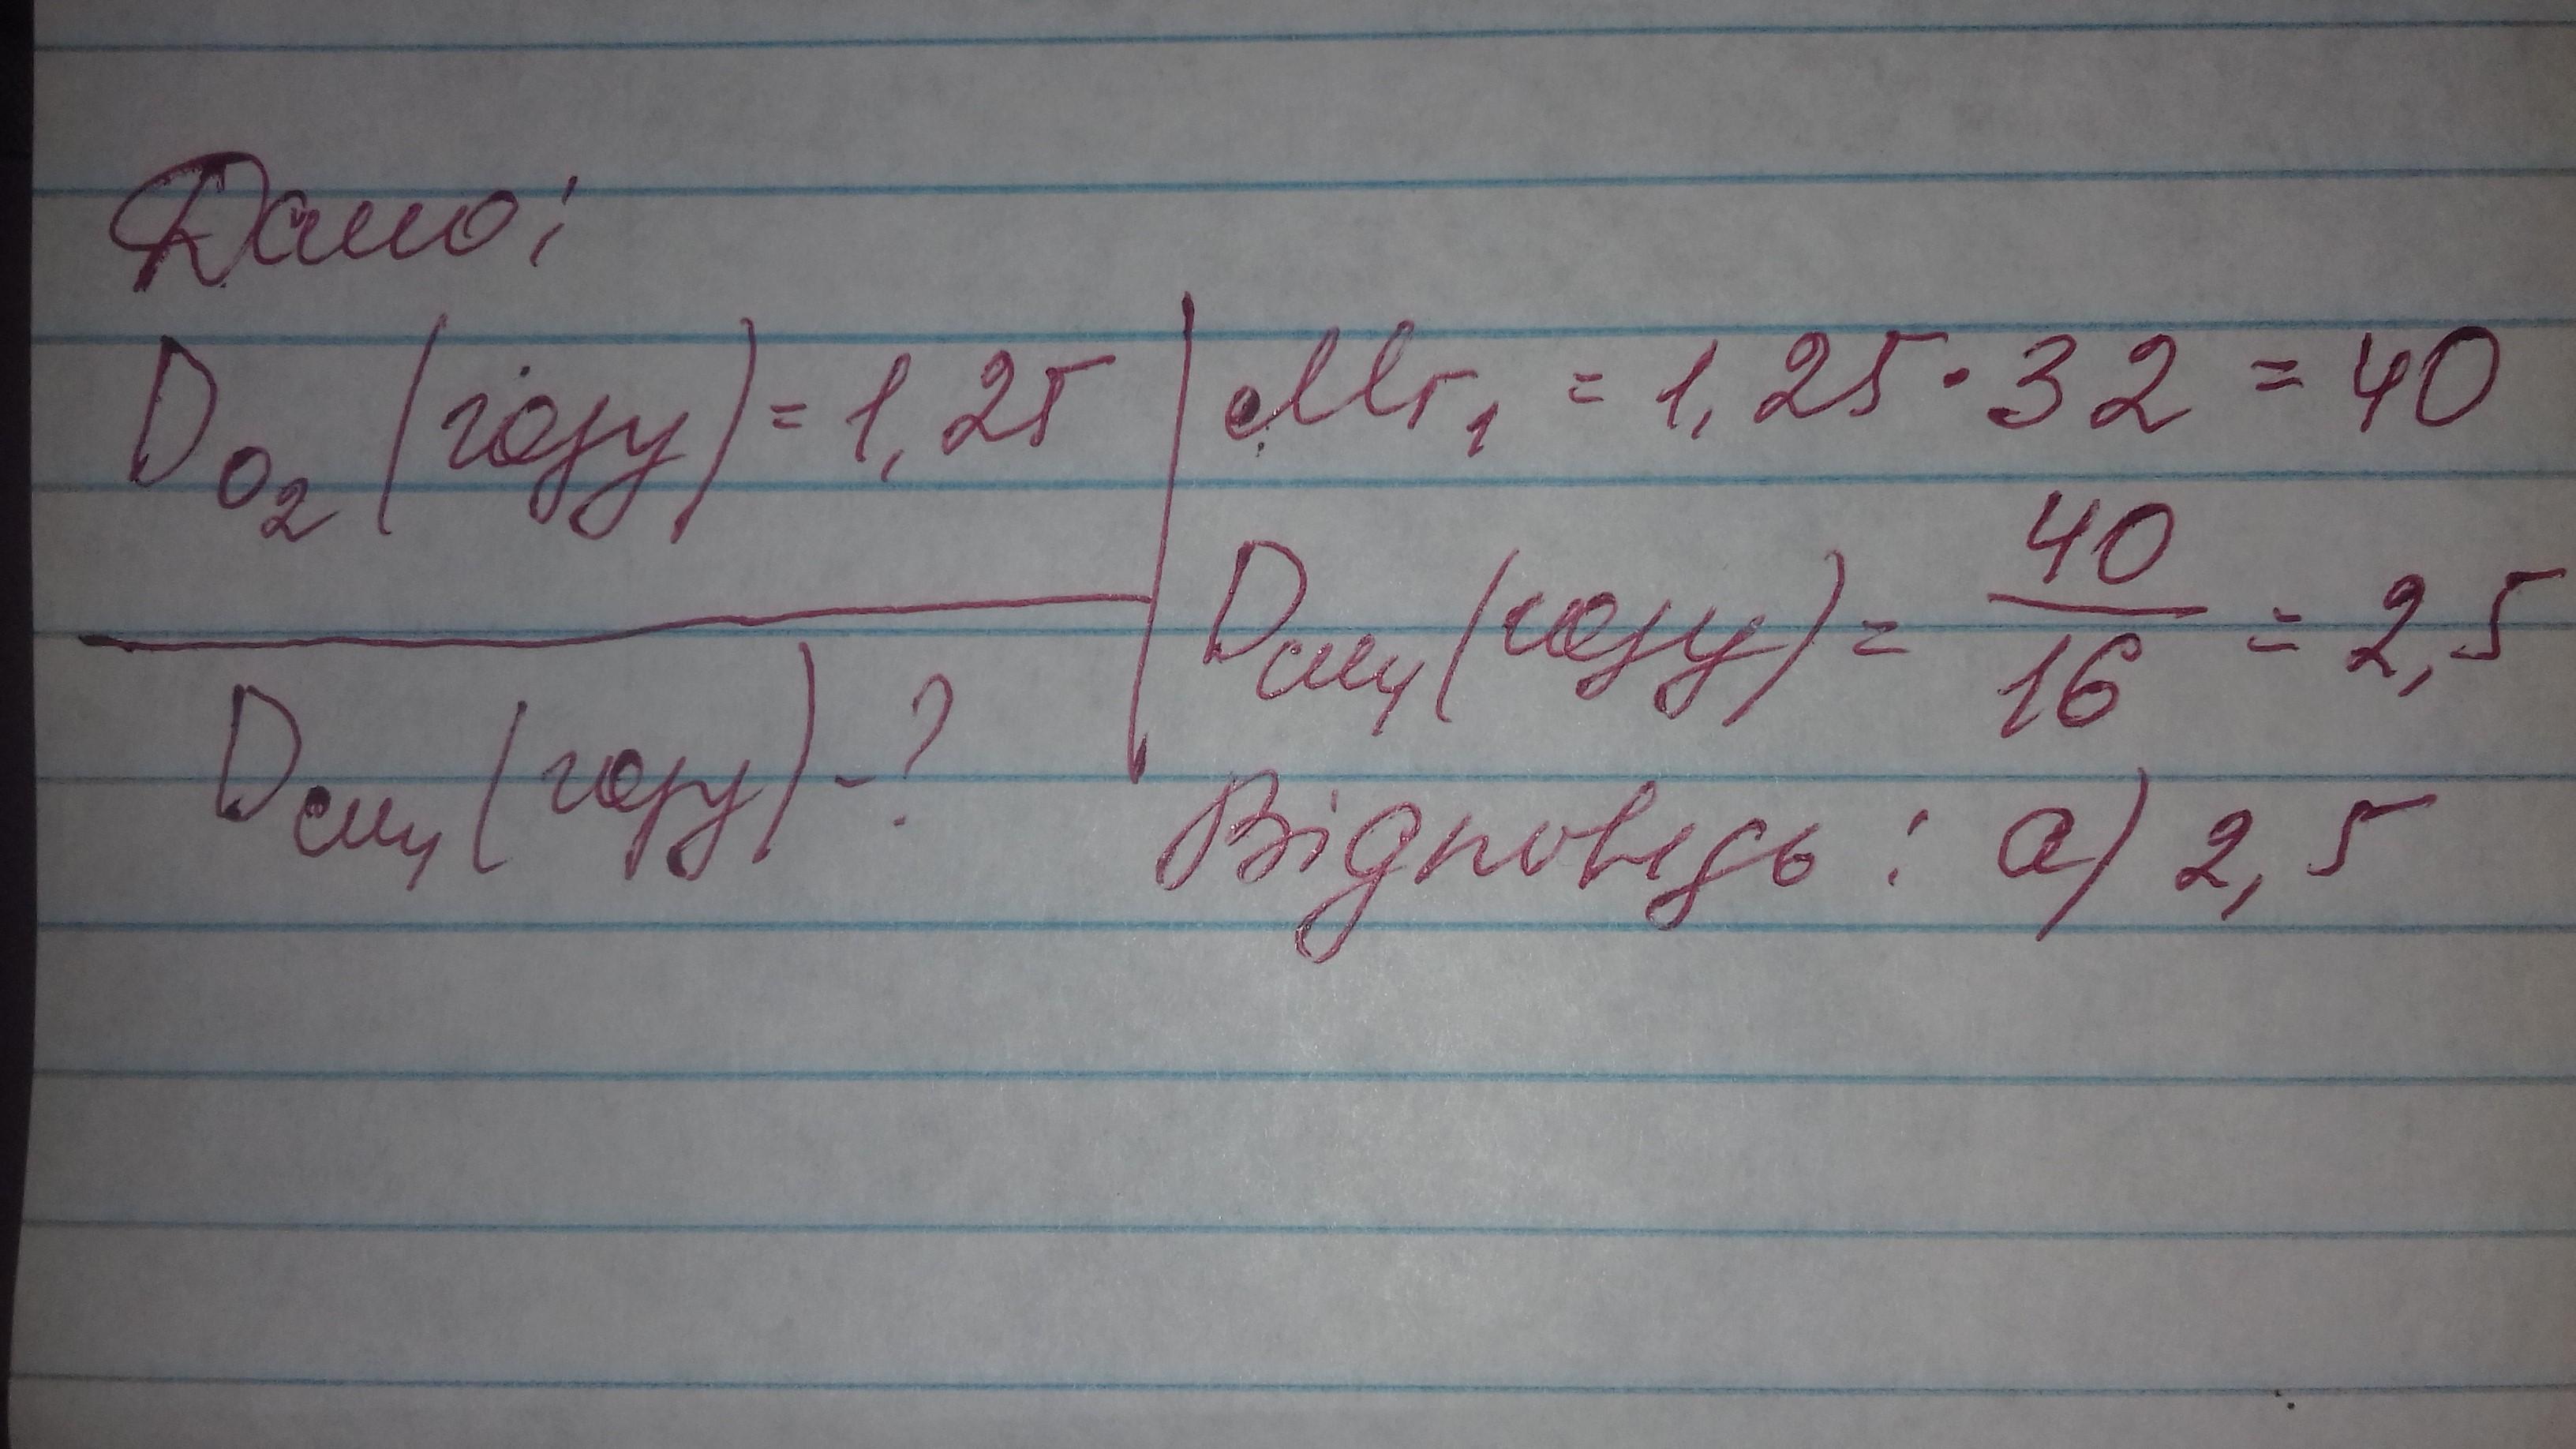 Дано:
D O₂ (газу) = 1,25
D CH₄ (газу) - ?
Mr₁ = 1,25 · 32 = 40
D CH₄ (газу) = 40/16 = 2,5
Відповідь: а) 2,5